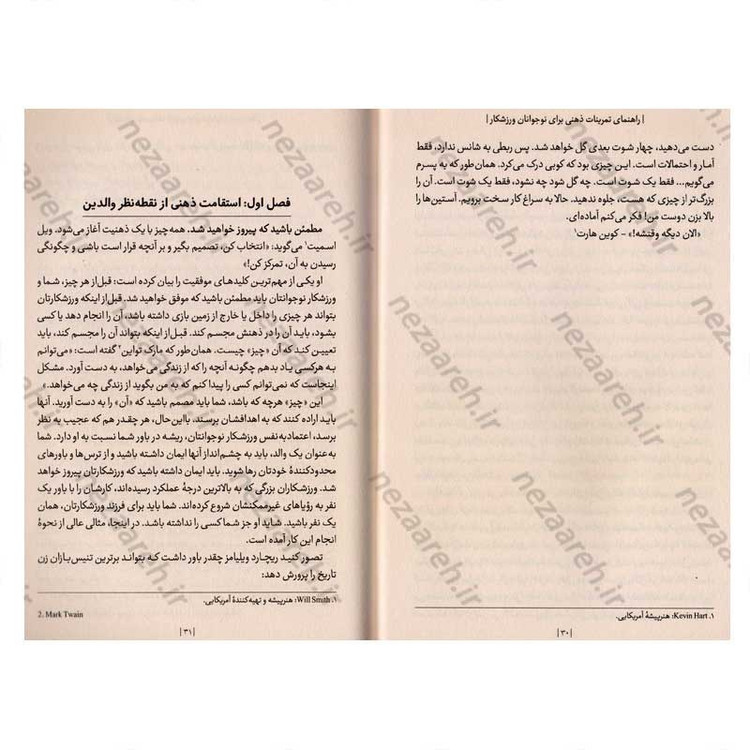 | راهنمای تمرینات ذهنی برای نوجوانان ورزشکار |
دست می‌دهید، چهار شوت بعدی گل خواهد شد. پس ربطی به شانس ندارد، فقط
آمار و احتمالات است. این چیزی بود که کوبی درک می‌کرد. همان‌طور که به پسرم
می‌گویم... فقط یک شوت است. چه گل شود چه نشود، فقط یک شوت است. آن را
بزرگ‌تر از چیزی که هست، جلوه ندهید. حالا به سراغ کار سخت برویم. آستین‌ها را
بالا بزن دوست من! فکر می‌کنم آماده‌ای.
«الان دیگه وقتشه!» - کوین هارت۱
۱. Kevin Hart: هنرپیشهٔ آمریکایی.
| ۳۰ |
فصل اول: استقامت ذهنی از نقطه‌نظر والدین
مطمئن باشید که پیروز خواهید شد. همه‌چیز با یک ذهنیت آغاز می‌شود. ویل
اسمیت۱ می‌گوید: «انتخاب کن، تصمیم بگیر و بر آنچه قرار است باشی و چگونگی
رسیدن به آن، تمرکز کن!»
او یکی از مهم‌ترین کلیدهای موفقیت را بیان کرده است: قبل از هر چیز، شما و
ورزشکار نوجوانتان باید مطمئن باشید که موفق خواهید شد. قبل از اینکه ورزشکارتان
بتواند هر چیزی را داخل یا خارج از زمین بازی داشته باشد، آن را انجام دهد یا کسی
بشود، باید آن را در ذهنش مجسم کند. قبل از اینکه بتواند آن را مجسم کند، باید
تعیین کند که آن «چیز» چیست. همان‌طور که مارک تواین۲ گفته است: «می‌توانم
به هرکسی یاد بدهم چگونه آنچه را که از زندگی می‌خواهد، به دست آورد. مشکل
اینجاست که نمی‌توانم کسی را پیدا کنم که به من بگوید از زندگی چه می‌خواهد.»
این «چیز» هرچه که باشد، شما باید مصمم باشید که «آن» را به دست آورید. آنها
باید اراده کنند که به اهدافشان برسند. بااین‌حال، هر چقدر هم که عجیب به نظر
برسد، اعتمادبه‌نفس ورزشکار نوجوانتان، ریشه در باور شما نسبت به او دارد. شما
به‌عنوان یک والد، باید به چشم‌انداز آنها ایمان داشته باشید و از ترس‌ها و باورهای
محدودکنندهٔ خودتان رها شوید. باید ایمان داشته باشید که ورزشکارتان پیروز خواهد
شد. ورزشکاران بزرگی که به بالاترین درجهٔ عملکرد رسیده‌اند، کارشان را با باور یک
نفر به رؤیاهای غیرممکنشان شروع کرده‌اند. شما باید برای فرزند ورزشکارتان، همان
یک نفر باشید. شاید او جز شما کسی را نداشته باشد. در اینجا، مثالی عالی از نحوهٔ
انجام این کار آمده است.
تصور کنید ریچارد ویلیامز چقدر باور داشت که بتواند برترین تنیس‌بازان زن
تاریخ را پرورش دهد:
۱. Will Smith: هنرپیشه و تهیه‌کنندهٔ آمریکایی.
2. Mark Twain
| ۳۱ |
nezaareh.ir